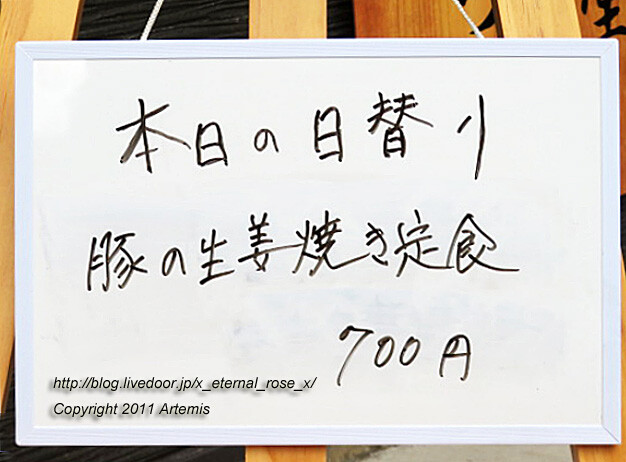 本日の日替り
豚の生姜焼き定食
700円
http://blog.livedoor.jp/x_eternal_rose_x/
Copyright 2011 Artemis